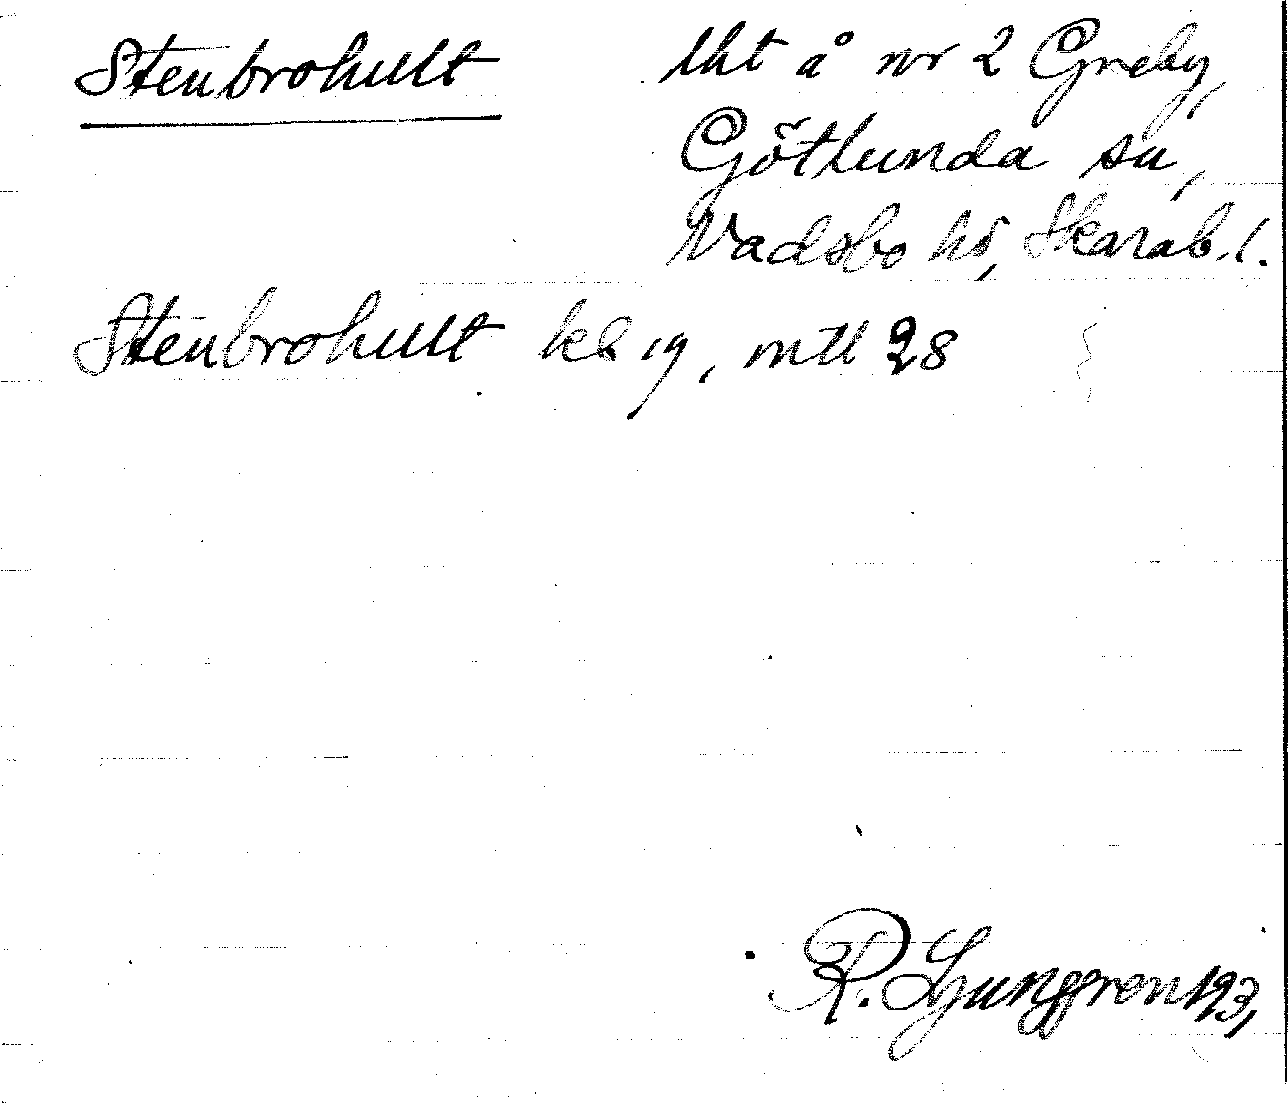 Stenbrohult
lht å nr 2 Greby,
Götlunda sn,
Vadsbo hd, Skarab. l.
Stenbrohult kb 19, mtl 28
R. Ljunggren 1931